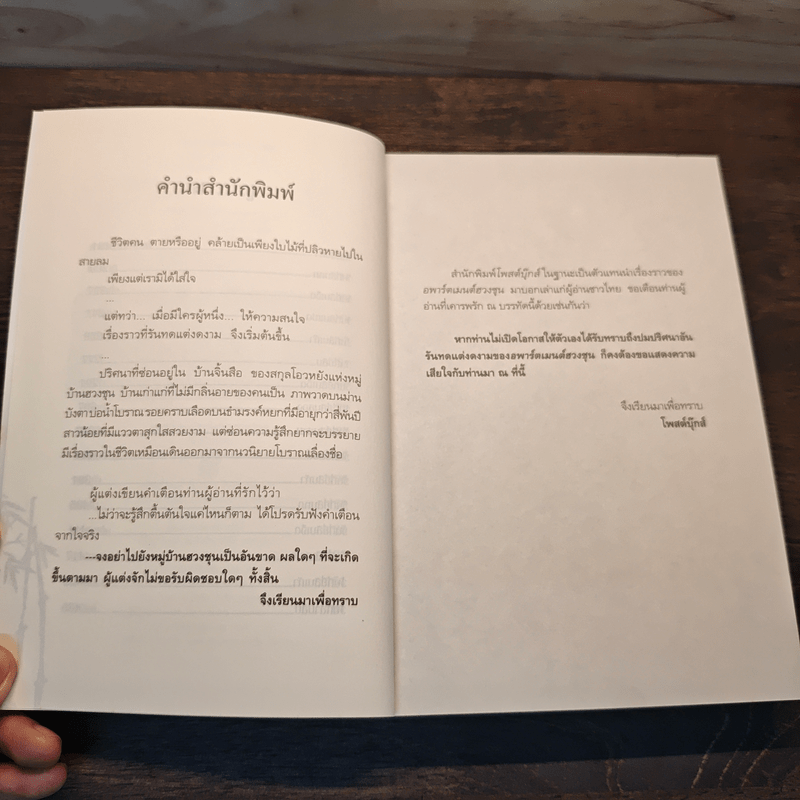 คำนำสำนักพิมพ์
ชีวิตคน ตายหรืออยู่ คล้ายเป็นเพียงใบไม้ที่ปลิวหายไปใน
สายลม
เพียงแต่เรามิได้ใส่ใจ
...
แต่ทว่า... เมื่อมีใครผู้หนึ่ง... ให้ความสนใจ
เรื่องราวที่รันทดแต่งดงาม จึงเริ่มต้นขึ้น
...
ปริศนาที่ซ่อนอยู่ใน บ้านจิ้นสือ ของสกุลโอวหยังแห่งหมู่
บ้านฮวงซุน บ้านเก่าแก่ที่ไม่มีกลิ่นอายของคนเป็น ภาพวาดบนม่าน
บังตา บ่อน้ำโบราณ รอยคราบเลือดบนธำมรงค์หยกที่มีอายุกว่าสี่พันปี
สาวน้อยที่มีแววตาสุกใสสวยงาม แต่ซ่อนความรู้สึกยากจะบรรยาย
มีเรื่องราวในชีวิตเหมือนเดินออกมาจากนวนิยายโบราณเลื่องชื่อ
ผู้แต่งเขียนคำเตือนท่านผู้อ่านที่รักไว้ว่า
...ไม่ว่าจะรู้สึกตื้นตันใจแค่ไหนก็ตาม ได้โปรดรับฟังคำเตือน
จากใจจริง
---จงอย่าไปยังหมู่บ้านฮวงซุนเป็นอันขาด ผลใดๆ ที่จะเกิด
ขึ้นตามมา ผู้แต่งจักไม่ขอรับผิดชอบใดๆ ทั้งสิ้น
จึงเรียนมาเพื่อทราบ
สำนักพิมพ์โพสต์บุ๊กส์ ในฐานะเป็นตัวแทนนำเรื่องราวของ
อพาร์ตเมนต์ฮวงซุน มาบอกเล่าแก่ผู้อ่านชาวไทย ขอเตือนท่านผู้
อ่านที่เคารพรัก ณ บรรทัดนี้ด้วยเช่นกันว่า
หากท่านไม่เปิดโอกาสให้ตัวเองได้รับทราบถึงปมปริศนาอัน
รันทดแต่งดงามของอพาร์ตเมนต์ฮวงซุน ก็คงต้องขอแสดงความ
เสียใจกับท่านมา ณ ที่นี้
จึงเรียนมาเพื่อทราบ
โพสต์บุ๊กส์